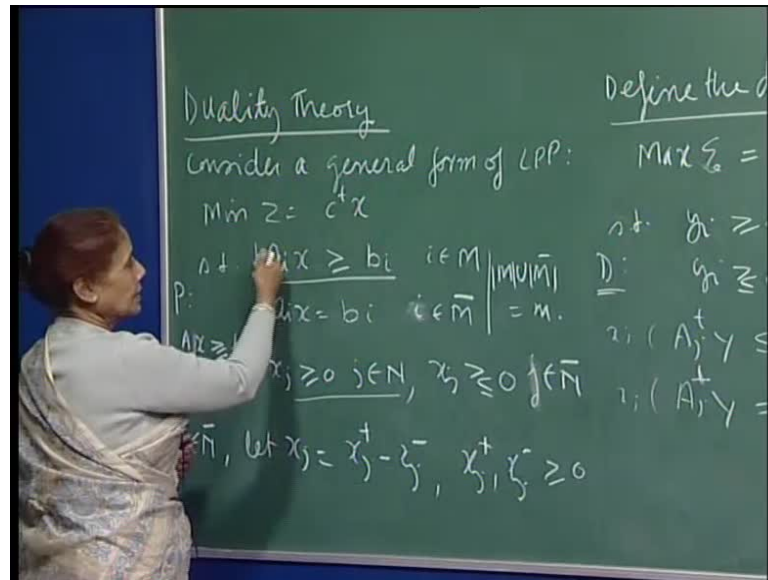 Duality Theory
Consider a general form of LPP:
Min Z = cᵗx
st. aᵢx ≥ bᵢ i∈M
P: aᵢx = bᵢ i∈M̄ |M∪M̄| = m.
xⱼ ≥ 0 j∈N, xⱼ ≷ 0 j∈N̄
∈N̄, let xⱼ = xⱼ⁺ - xⱼ⁻, xⱼ⁺, xⱼ⁻ ≥ 0
Define the d
Max ξ =
st. yᵢ ≥
D: yᵢ ≷
xⱼ ( Aⱼᵗ y ≤
xⱼ ( Aⱼᵗ y =